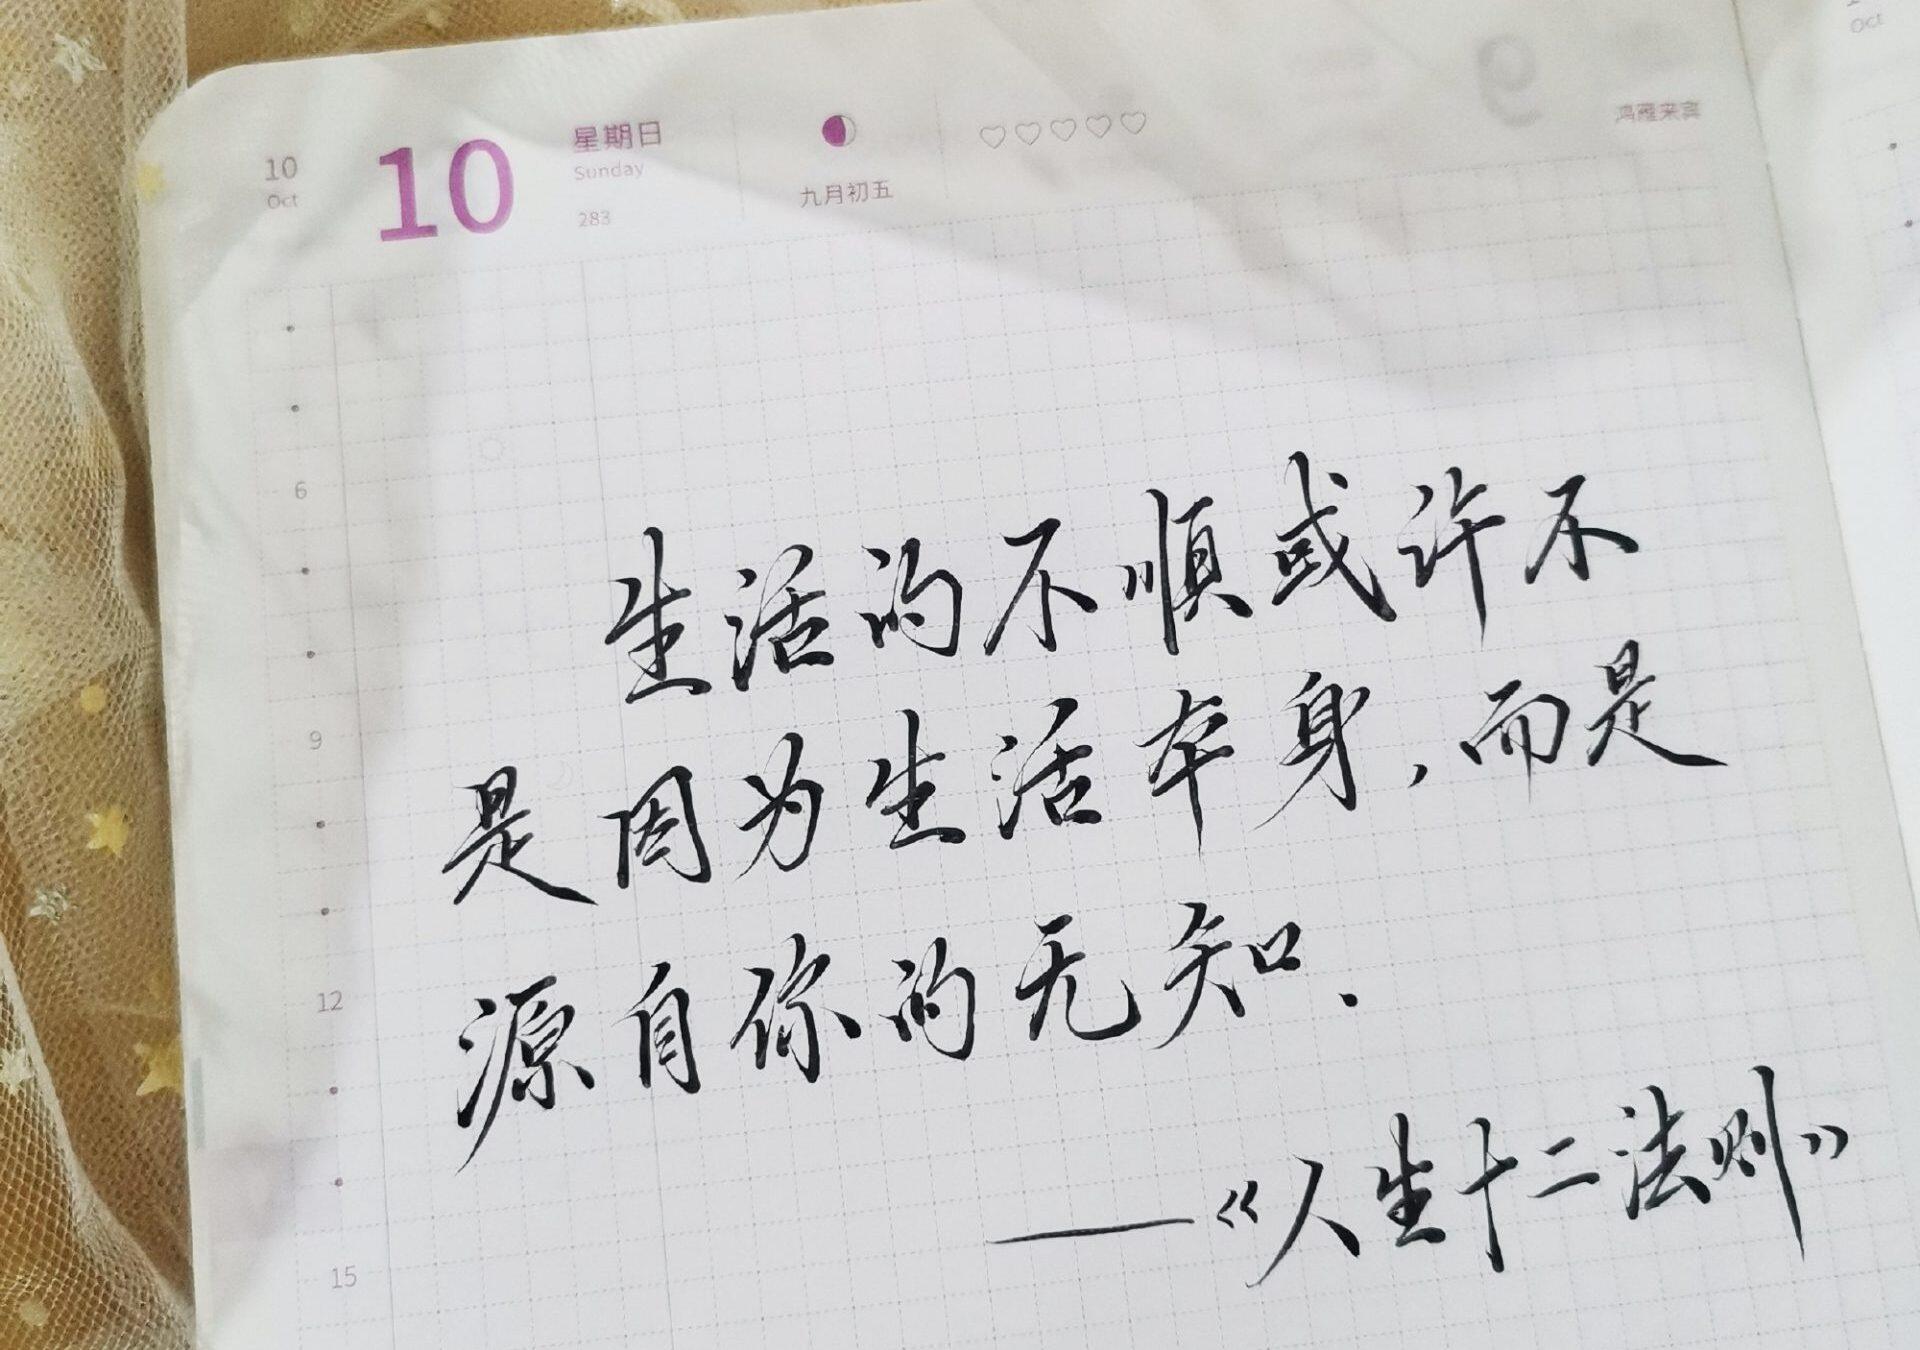 10
Oct
10
星期日
Sunday
283
九月初五
鸿雁来宾
Oct
6
9
12
15
生活的不顺或许不
是因为生活本身,而是
源自你的无知.
——《人生十二法则》